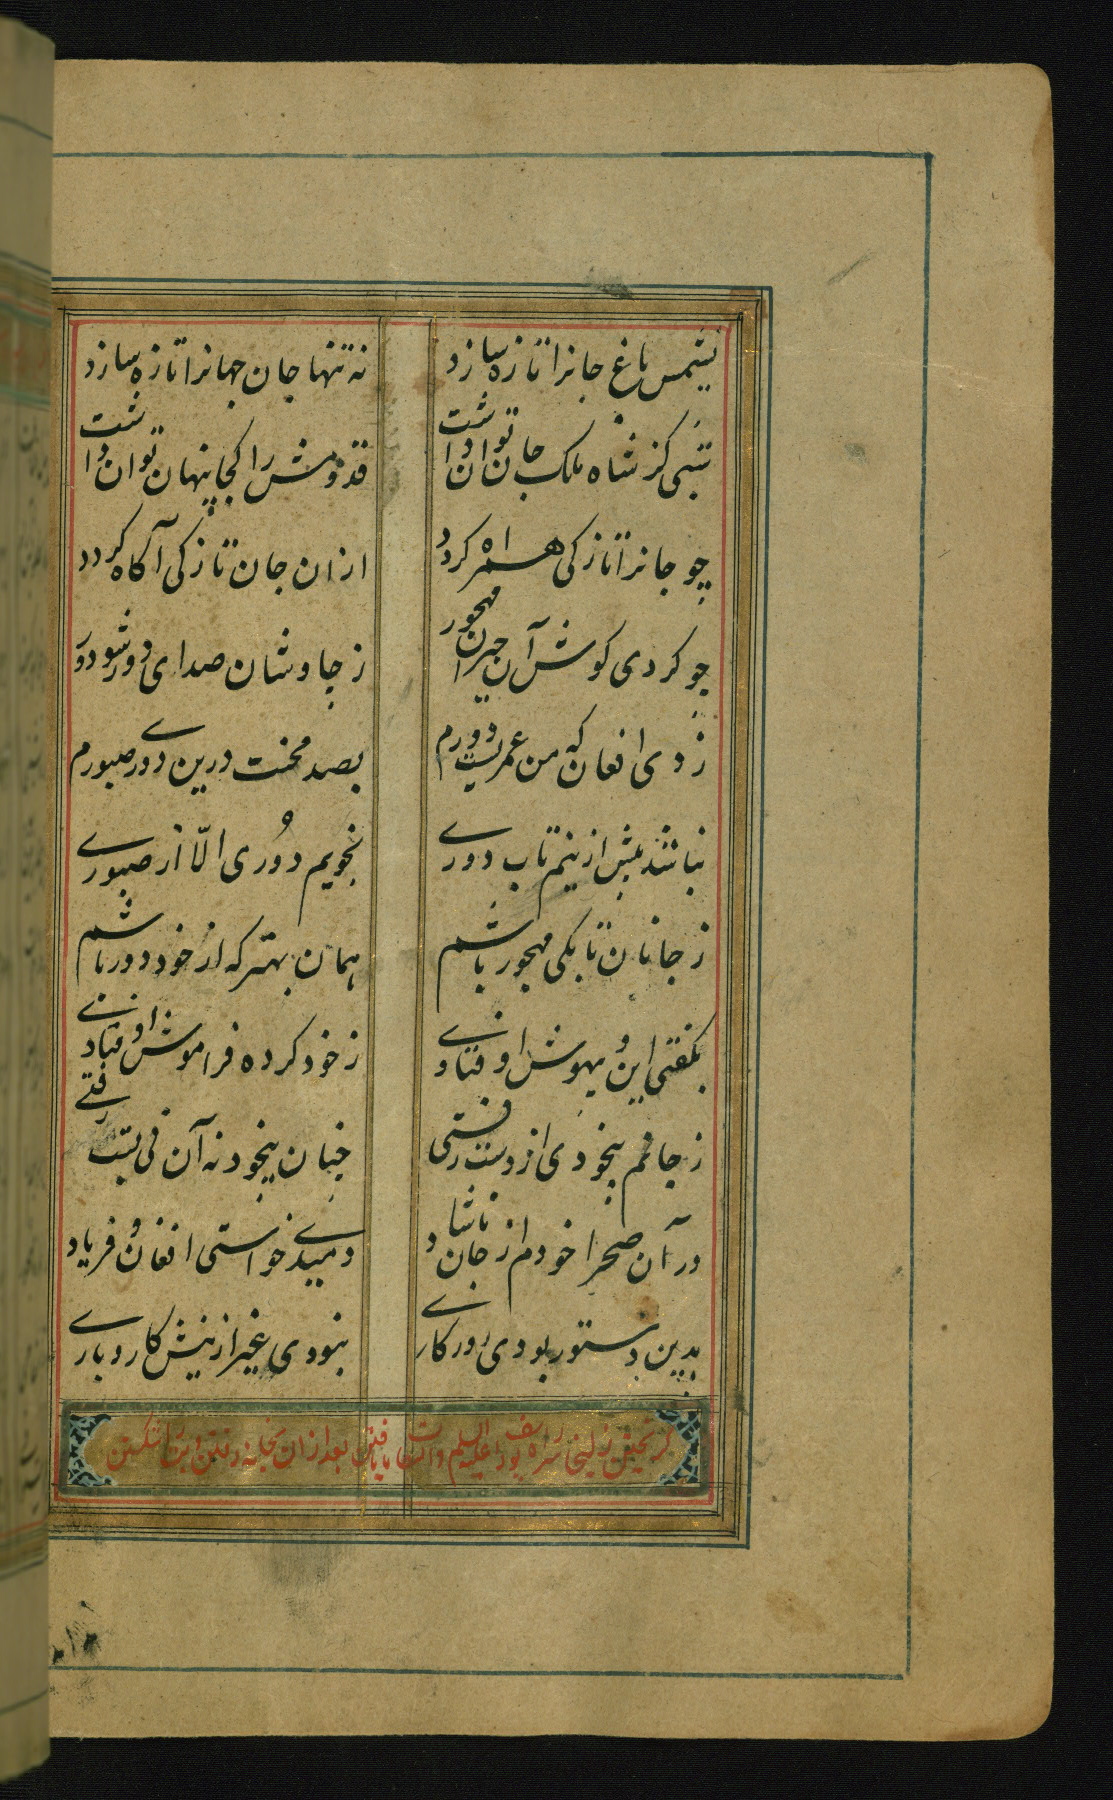 نسیمش باغ جانرا تازه سازد
نه تنها جان جهانرا تازه سازد
تنی کز شاه ملک جان توان داشت
قدومش را کجا پنهان توان داشت
چو جانرا تازکی همراه کردد
از ان جان تازکی آکاه کردد
چو کردی کوش آن حیران مهجور
ز چاوشان صدای دور شو دور
زدی افغان که من عمریست دورم
بصد محنت درین دوری صبورم
نباشد بیش ازینم تاب دوری
نجویم دوری الّا از صبوری
ز جانان تا بکی مهجور باشم
همان بهتر که از خود دور باشم
بکفتی این و بیهوش اوفتادی
ز خود کرده فراموش اوفتادی
ز جام بیخودی از دست رفتی
چنان بیخود نه آن نی بست رفتی
در آن صحرا خودم از جان ناشاد
دمیدی خواستی افغان و فریاد
بدین دستور بودی روزکاری
نبودی غیر ازینش کار و باری
کرفتن زلیخا سر راه یوسف علیه السلام و التفات نایافتن بعد از ان بخانه رفتن و بت را شکستن